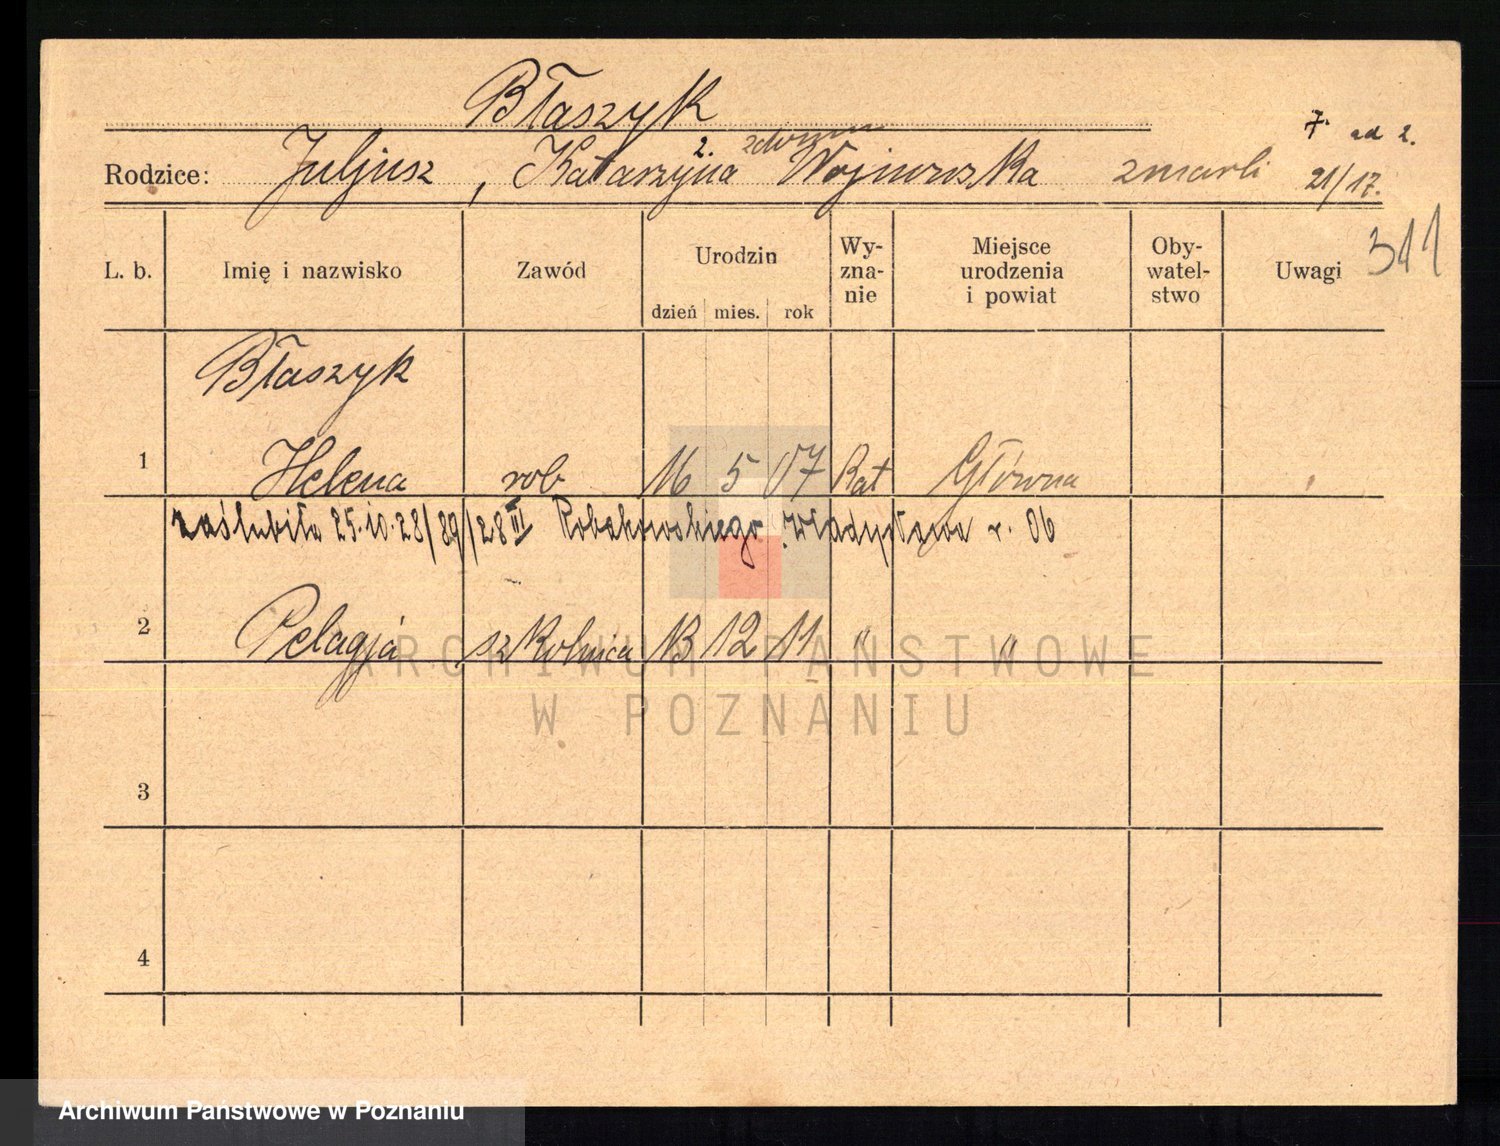 Błaszyk
7. ad 2.
Rodzice: Juljusz, Katarzyna 2. Wojnowska zmarli 21/17.
311
L. b. Imię i nazwisko Zawód Urodzin dzień mies. rok Wyznanie Miejsce urodzenia i powiat Obywatelstwo Uwagi
Błaszyk
1 Helena rob 16 5 07 Kat Główna
zaślubiła 25.10.28/89/28 III Robakowskiego Władysława r. 06
2 Pelagja szkolnica 13 12 11 " "
3
4
ARCHIWUM PAŃSTWOWE
W POZNANIU
Archiwum Państwowe w Poznaniu